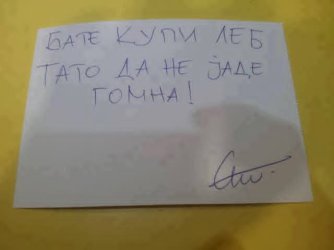 БАТЕ КУПИ ЛЕБ
ТАТО ДА НЕ ЈАДЕ
ГОМНА!